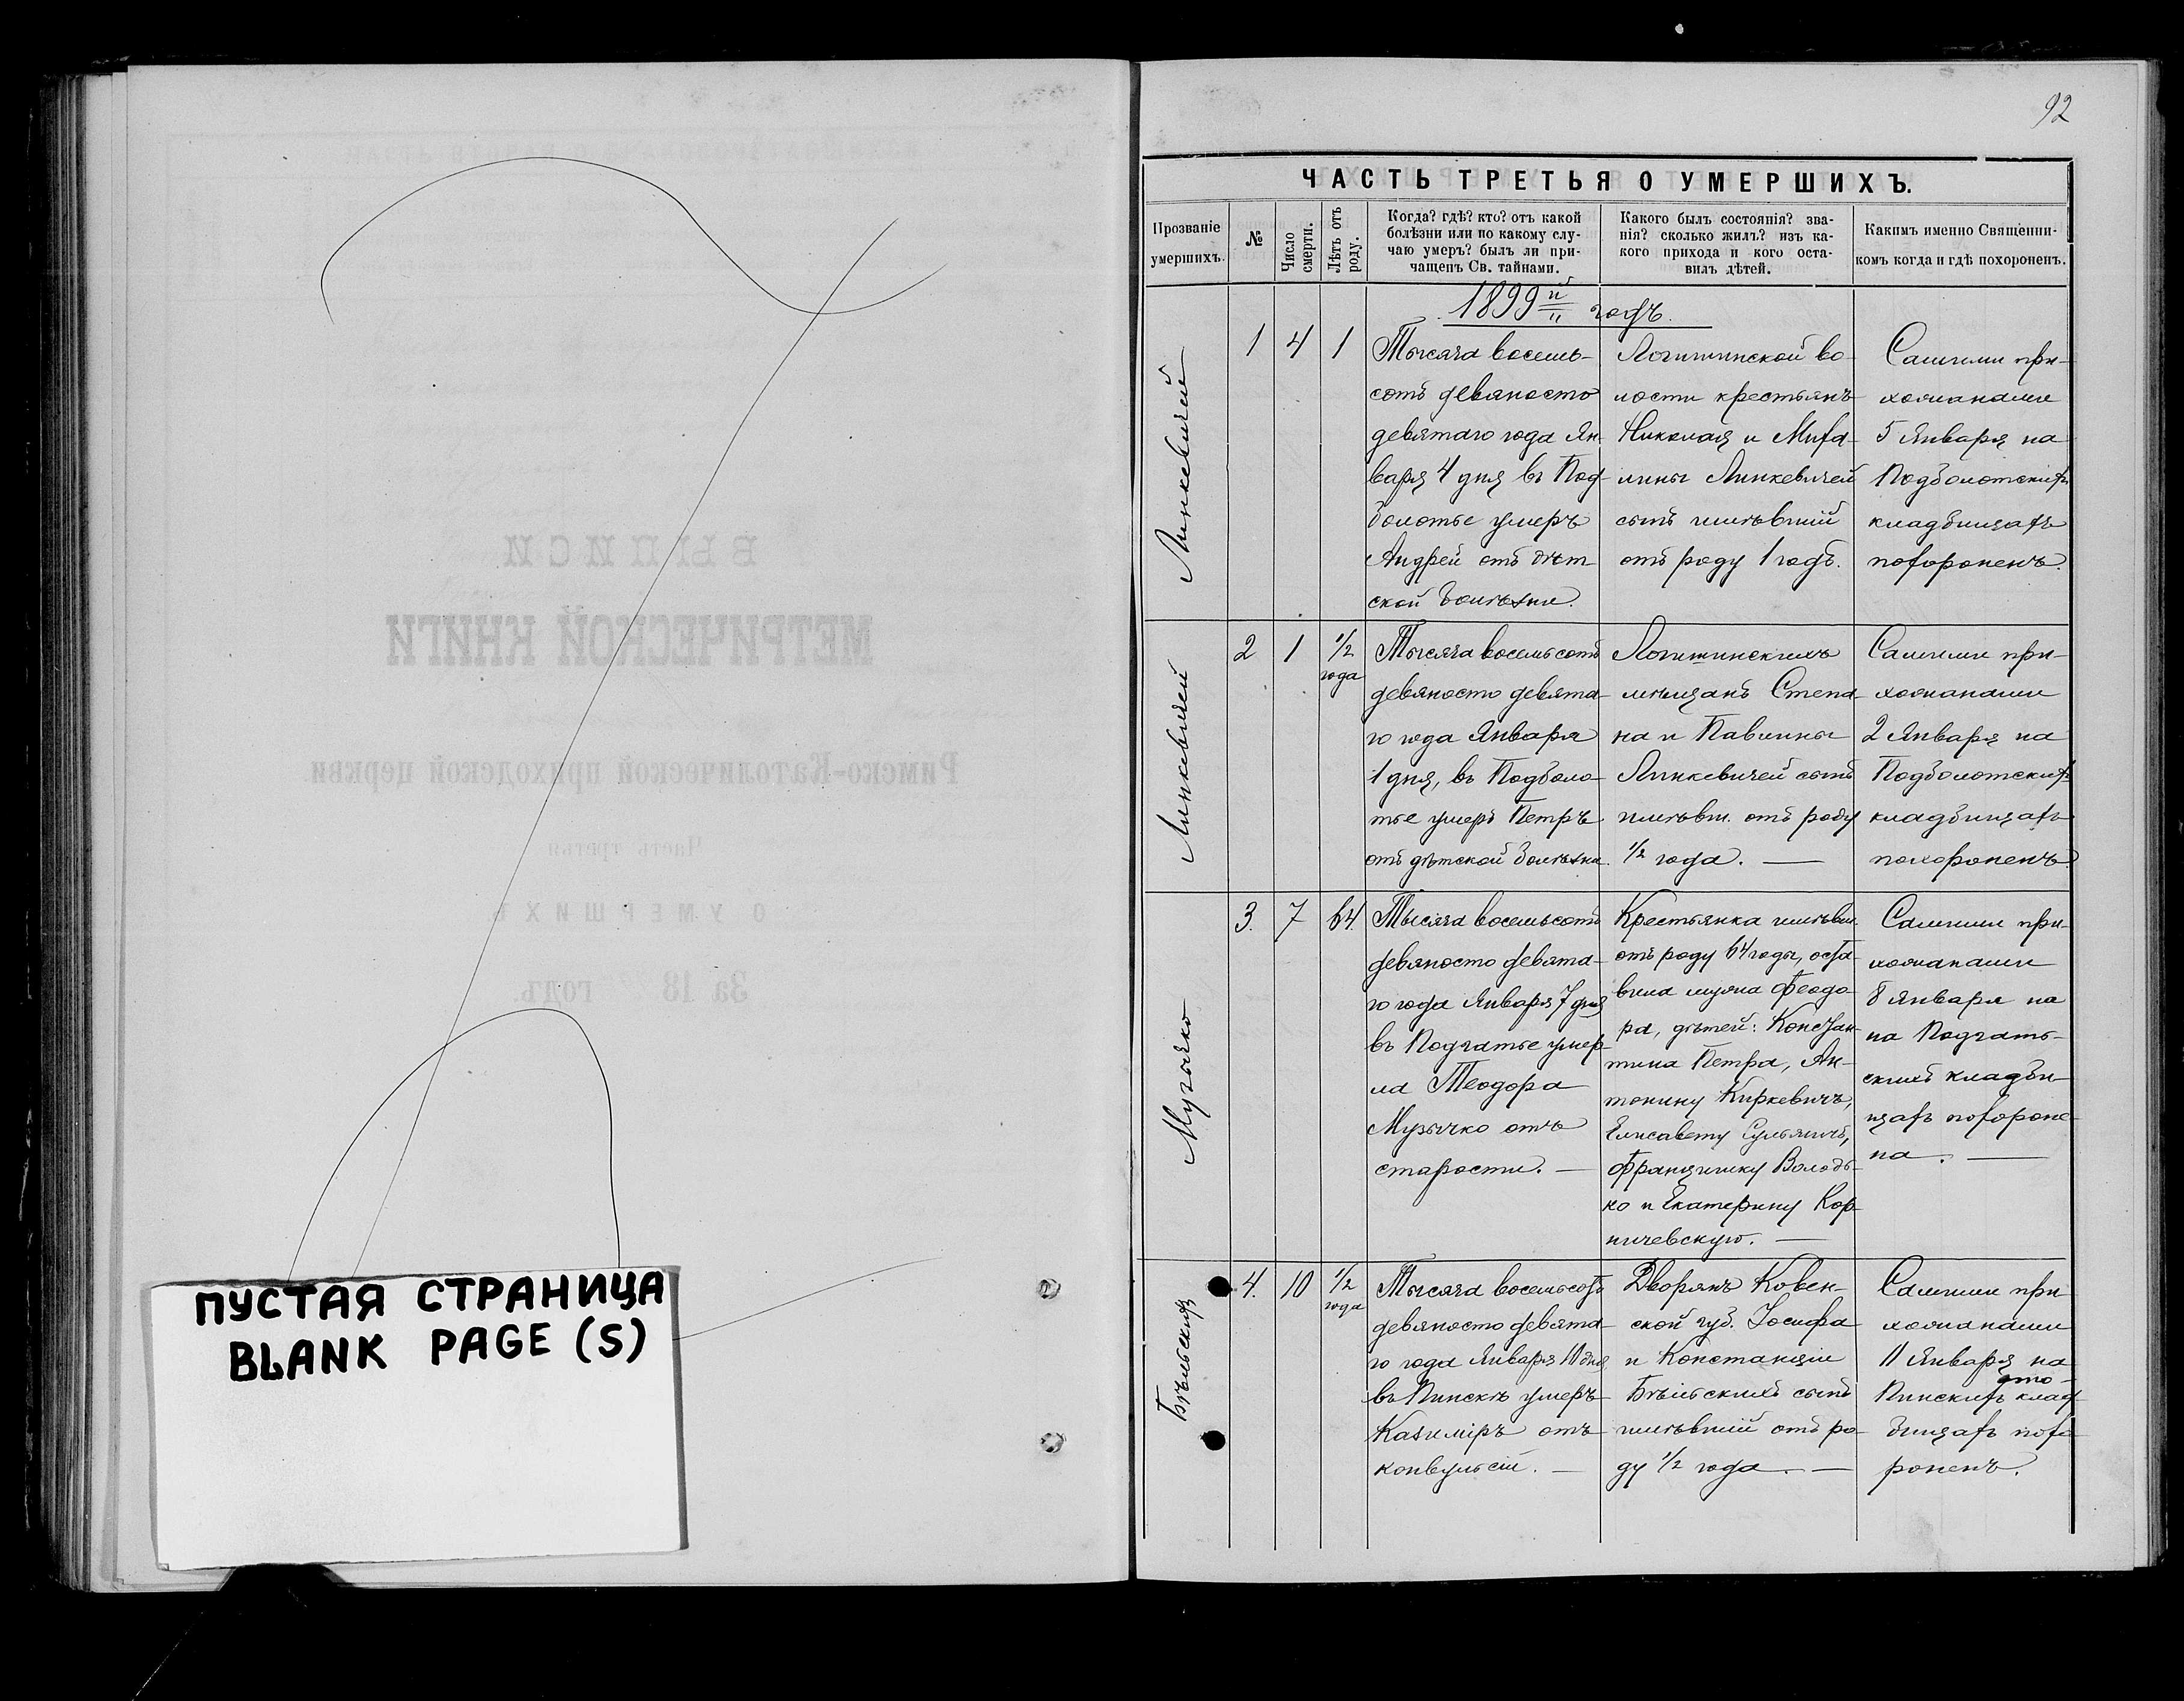 92
ЧАСТЬ ТРЕТЬЯ О УМЕРШИХЪ.
Прозваніе
умершихъ.
№
Число
смерти.
Лѣтъ отъ
роду.
Когда? гдѣ? кто? отъ какой
болѣзни или по какому слу-
чаю умеръ? былъ ли при-
чащенъ Св. тайнами.
Какого былъ состоянія? зва-
нія? сколько жилъ? изъ ка-
кого прихода и кого оста-
вилъ дѣтей.
Какимъ именно Священни-
комъ когда и гдѣ похороненъ.
1899й годъ.
Линкевичей
1
4
1
Тысяча восемь-
сотъ девяносто
девятаго года Ян-
варя 4 дня въ Под-
болотье умеръ
Андрей отъ дѣт-
ской болѣзни.
Логишинской во-
лости крестьянъ
Николая и Миха-
лины Линкевичей
сынъ имѣвшій
отъ роду 1 годъ.
Самими при-
хожанами
5 Января на
Подболотскихъ
кладбищахъ
похороненъ.
Линкевичей
2
1
1/2
года
Тысяча восемьсотъ
девяносто девята-
го года Января
1 дня, въ Подболо-
тье умеръ Петръ
отъ дѣтской болѣзни.
Логишинскихъ
мѣщанъ Степа-
на и Павлины
Линкевичей сынъ
имѣвш. отъ роду
1/2 года. —
Самими при-
хожанами
2 Января на
Подболотскихъ
кладбищахъ
похороненъ.
Музычко
3.
7
64.
Тысяча восемьсотъ
девяносто девята-
го года Января 7 дня
въ Подгатье умер-
ла Теодора
Музычко отъ
старости. —
Крестьянка имѣвш.
отъ роду 64 года, оста-
вила мужа Феодо-
ра, дѣтей: Констан-
тина Петра, Ан-
тонину Киркевичъ,
Елисавету
Францишку Володь-
ко и Екатерину Кор-
ничевскую. —
Самими при-
хожанами
8 Января на
на Подгать-
скихъ кладби-
щахъ похороне-
на. —
Бѣльскихъ
4.
10
1/2
года
Тысяча восемьсотъ
девяносто девята-
го года Января 10 дня
въ Пинскѣ умеръ
Казиміръ отъ
конвульсіи. —
Дворянъ Ковен-
ской губ. Іосифа
и Констанціи
Бѣльскихъ сынъ
имѣвшій отъ ро-
ду 1/2 года. —
Самими при
хожанами
11 Января на
Пинскихъ клад
бищахъ похо
роненъ.
ВЫПИСИ
МЕТРИЧЕСКОЙ КНИГИ
Римско-Католической приходской церкви
Часть третья
О УМЕРШИХЪ
За 18 годъ.
ПУСТАЯ СТРАНИЦА
BLANK PAGE (S)